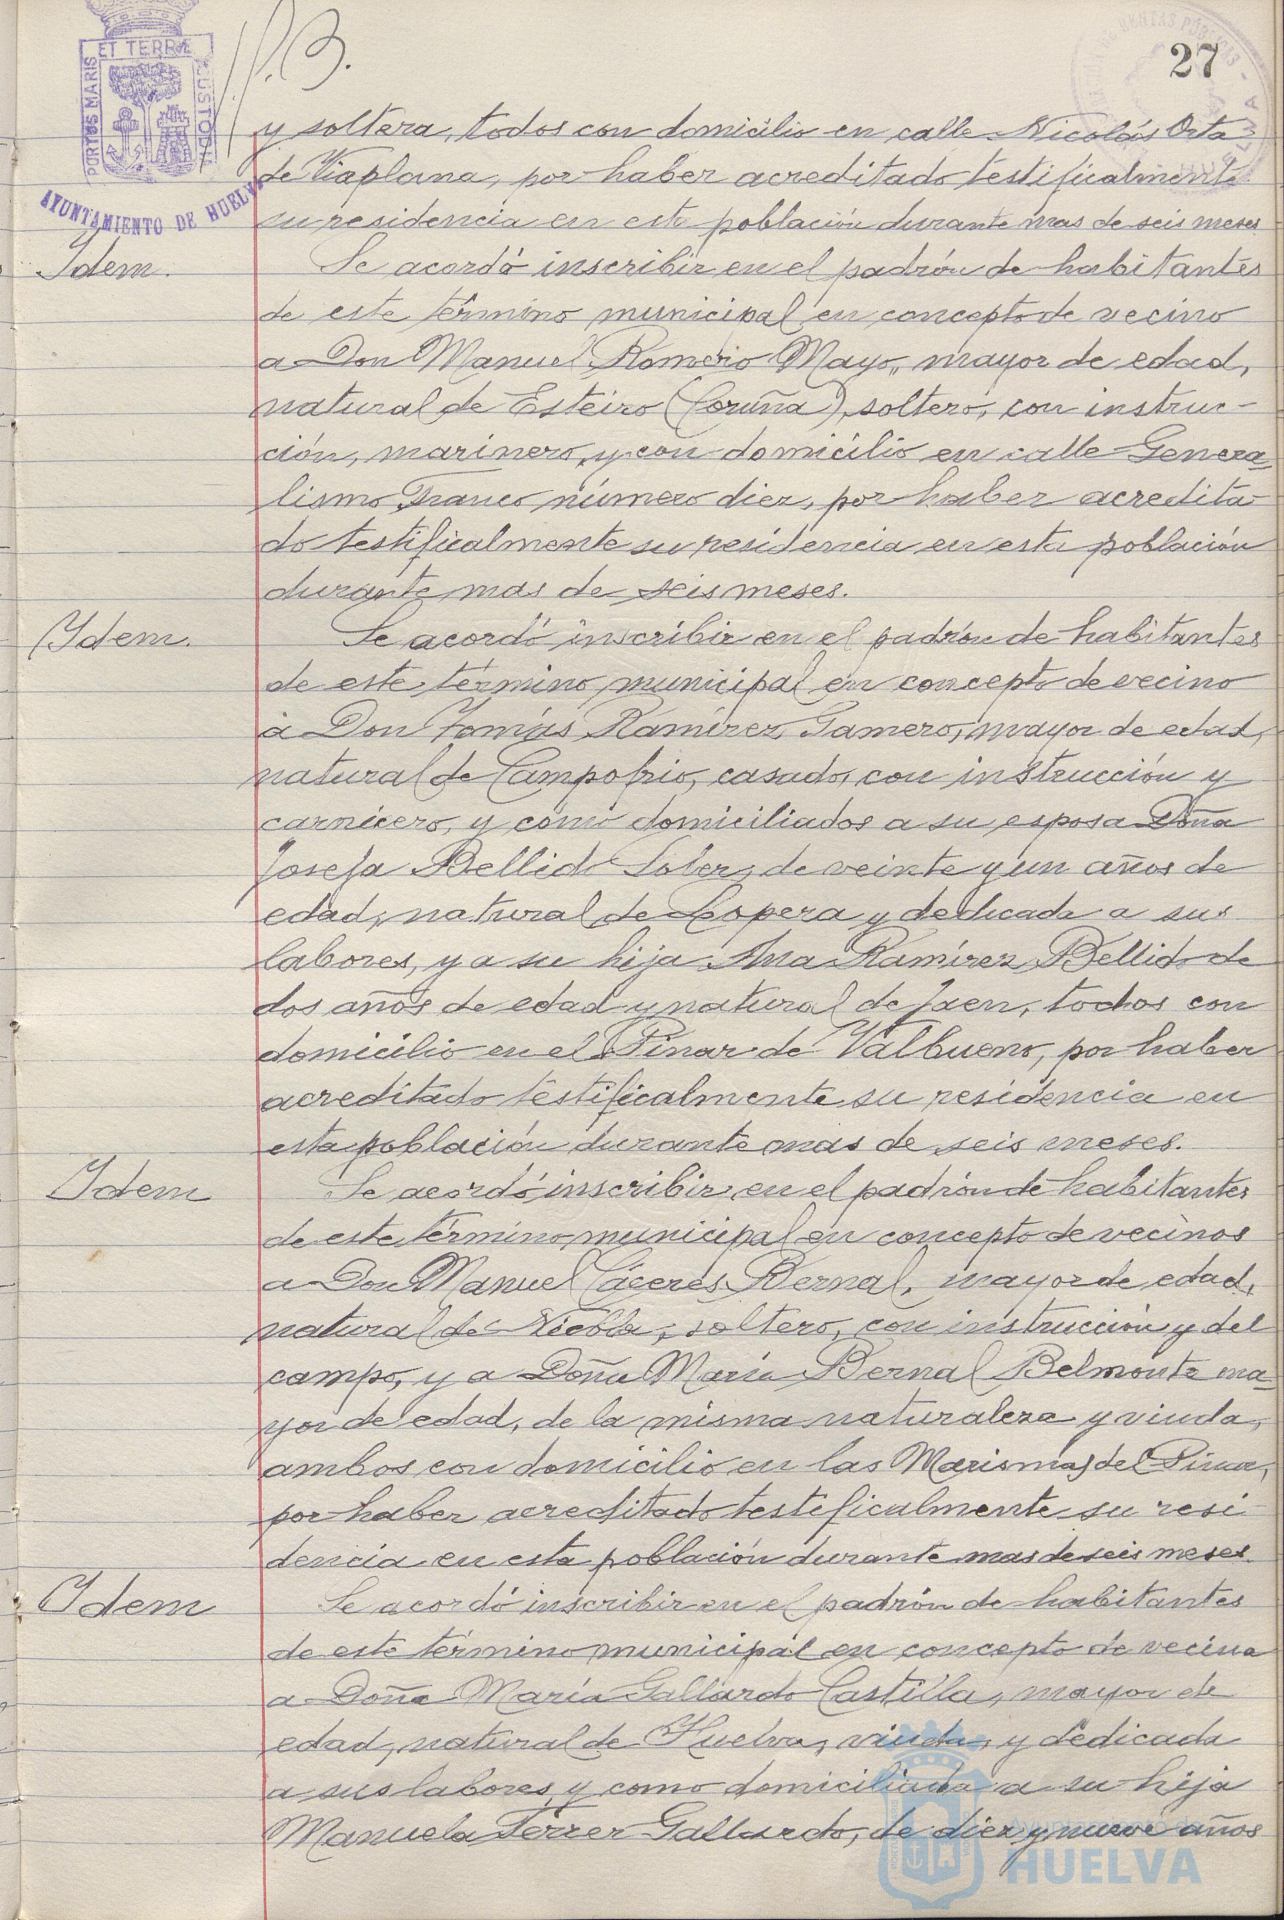 PORTUS MARIS ET TERRÆ CUSTODIA
AYUNTAMIENTO DE HUELVA
27
y soltera, todos con domicilio en calle Nicolás Orta
de Viaplana, por haber acreditado testificalmente
su residencia en esta población durante mas de seis meses
Idem.
Se acordó inscribir en el padrón de habitantes
de este término municipal en concepto de vecino
a Don Manuel Romero Mayo, mayor de edad,
natural de Esteiro (Coruña), soltero, con instruc-
ción, marinero, y con domicilio en calle Genera-
lismo Franco número diez, por haber acredita-
do testificalmente su residencia en esta población
durante mas de seis meses.
Idem.
Se acordó inscribir en el padrón de habitantes
de este término municipal en concepto de vecino
a Don Tomás Ramírez Gamero, mayor de edad,
natural de Campofrio, casado, con instrucción y
carnicero, y como domiciliados a su esposa Doña
Josefa Bellido de veinte y un años de
edad, natural de Lopera y dedicada a sus
labores, y a su hija Ana Ramírez Bellido de
dos años de edad y natural de Jaen, todos con
domicilio en el Pinar de Valbueno, por haber
acreditado testificalmente su residencia en
esta población durante mas de seis meses.
Idem
Se acordó inscribir en el padrón de habitantes
de este término municipal en concepto de vecinos
a Don Manuel Cáceres Bernal, mayor de edad,
natural de Niebla, soltero, con instrucción y del
campo, y a Doña María Bernal Belmonte ma-
yor de edad, de la misma naturaleza y viuda,
ambos con domicilio en las Marismas del Pinar,
por haber acreditado testificalmente su resi
dencia en esta población durante mas de seis meses.
Idem
Se acordó inscribir en el padrón de habitantes
de este término municipal en concepto de vecina
a Doña María Gallardo Castilla, mayor de
edad, natural de Huelva, viuda, y dedicada
a sus labores, y como domiciliada a su hija
Manuela Ferrer Gallardo, de diez y nueve años
HUELVA